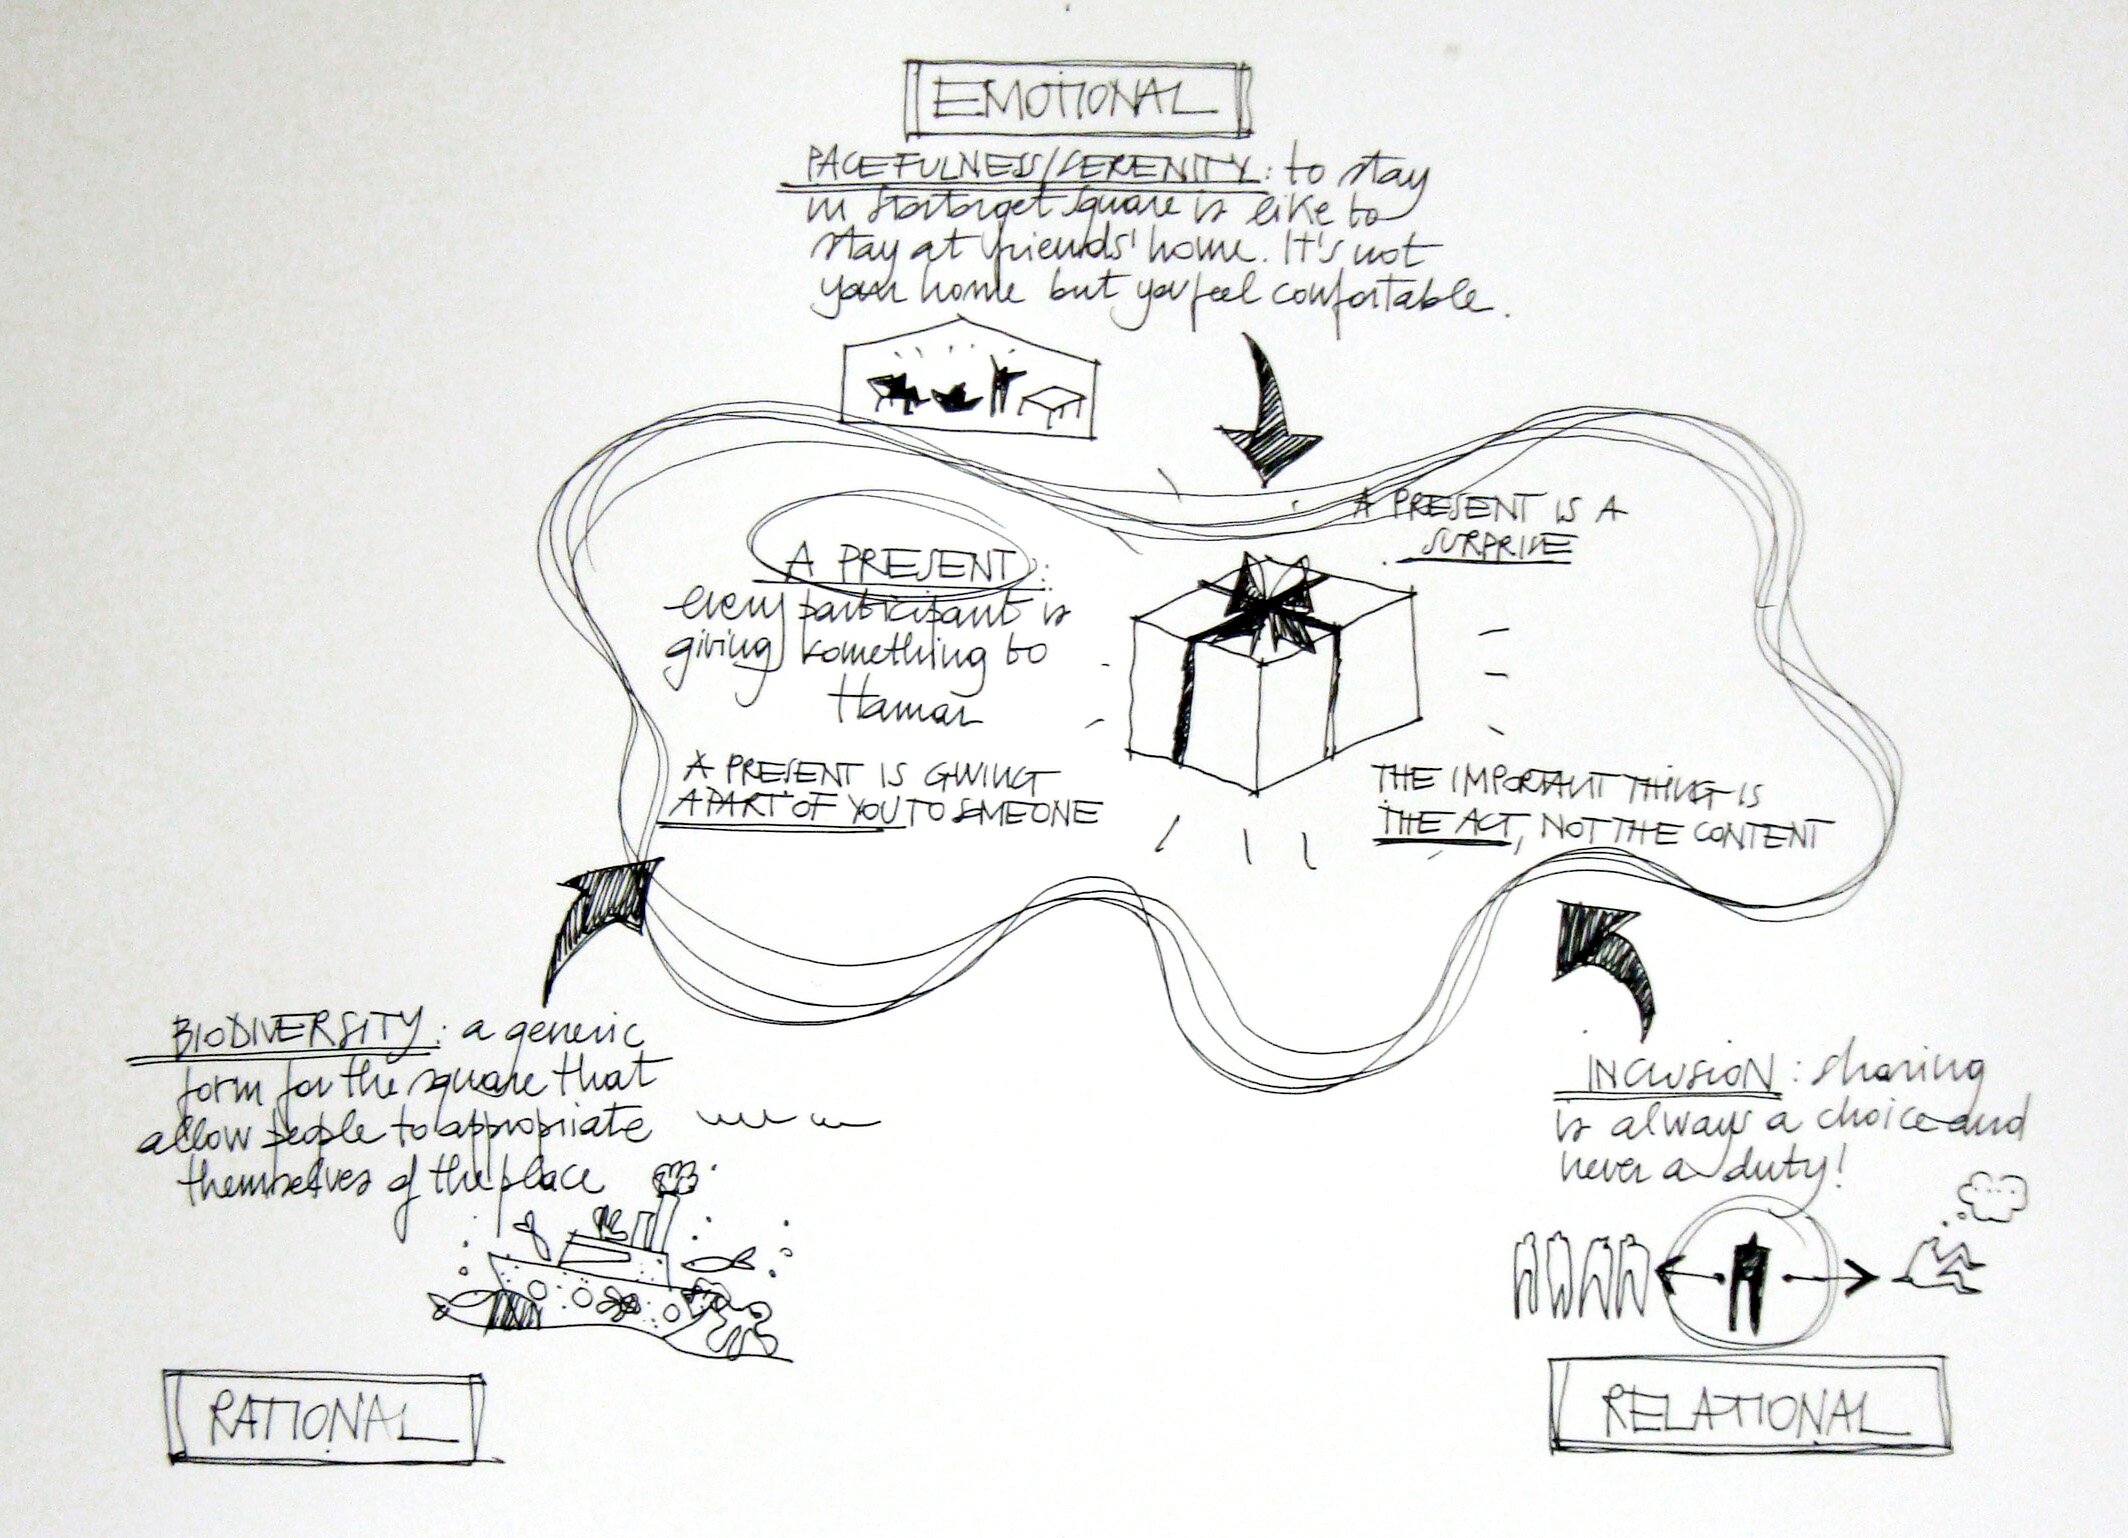 EMOTIONAL
PACEFULNESS/SERENITY: to stay
in Stortorget square is like to
stay at friends' home. It's not
your home but you feel confortable.
A PRESENT IS A
SURPRISE
A PRESENT:
every participant is
giving something to
Hamar
A PRESENT IS GIVING
A PART OF YOU TO SOMEONE
THE IMPORTANT THING IS
THE ACT, NOT THE CONTENT
BIODIVERSITY: a generic
form for the square that
allow people to appropriate
themselves of the place
INCLUSION: sharing
is always a choice and
never a duty!
RATIONAL
RELATIONAL